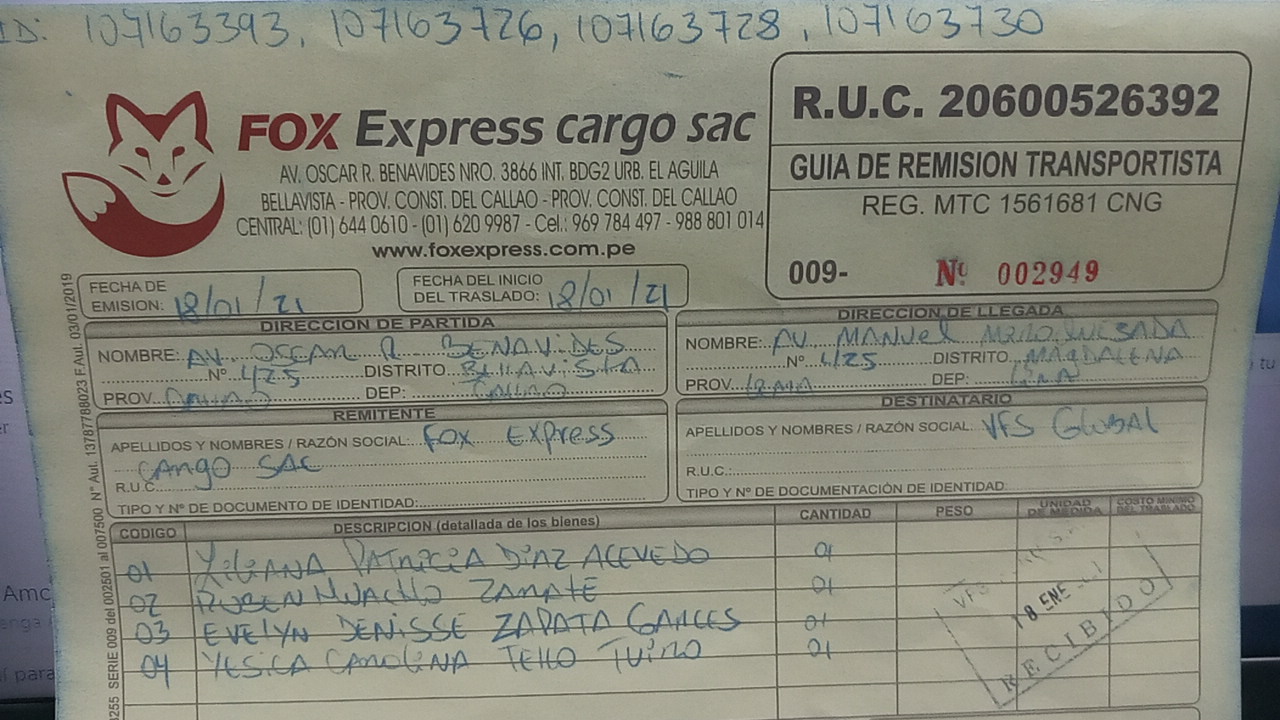 ID: 107163393, 107163726, 107163728, 107163730
FOX Express cargo sac
AV. OSCAR R. BENAVIDES NRO. 3866 INT. BDG2 URB. EL AGUILA
BELLAVISTA - PROV. CONST. DEL CALLAO - PROV. CONST. DEL CALLAO
CENTRAL: (01) 644 0610 - (01) 620 9987 - Cel.: 969 784 497 - 988 801 014
www.foxexpress.com.pe
R.U.C. 20600526392
GUIA DE REMISION TRANSPORTISTA
REG. MTC 1561681 CNG
009- Nº 002949
FECHA DE EMISION: 18/01/21
FECHA DEL INICIO
DEL TRASLADO: 18/01/21
DIRECCION DE PARTIDA
NOMBRE: AV. OSCAR R BENAVIDES
Nº 4125 DISTRITO BELLAVISTA
PROV. CALLAO DEP: CALLAO
DIRECCION DE LLEGADA
NOMBRE: AV MANUEL
Nº 4125 DISTRITO MAGDALENA
PROV. LIMA DEP: LIMA
REMITENTE
APELLIDOS Y NOMBRES / RAZÓN SOCIAL: FOX EXPRESS
CARGO SAC
R.U.C.
TIPO Y Nº DE DOCUMENTO DE IDENTIDAD:
DESTINATARIO
APELLIDOS Y NOMBRES / RAZÓN SOCIAL: VFS GLOBAL
R.U.C.:
TIPO Y Nº DE DOCUMENTACIÓN DE IDENTIDAD:
CODIGO DESCRIPCION (detallada de los bienes) CANTIDAD PESO UNIDAD DE MEDIDA COSTO MINIMO DEL TRASLADO
01 LILIANA PATRICIA DIAZ ACEVEDO 01
02 RUBEN ZARATE 01
03 EVELYN DENISSE ZAPATA GARCES 01
04 YESICA CAROLINA TELLO 01
VFS
18 ENE
RECIBIDO
SERIE 009 del 002501 al 007500 Nº Aut. 13787788023 F.Aut. 03/01/2019
Amc
para